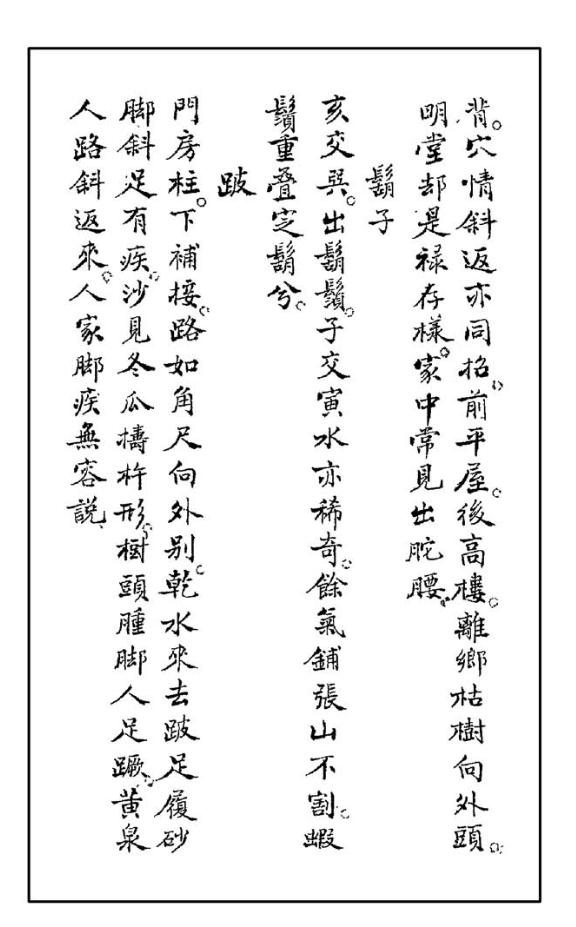 背。穴情斜返亦同招。前平屋。後高樓。離鄉枯樹向外頭。
明堂却是禄存樣。家中常見出駝腰。
鬍子
亥交巽。出鬍鬚。子交寅水亦稀奇。餘氣鋪張山不割。蝦
鬚重叠定鬍兮。
跛
門房柱。下補接。路如角尺向外别。乾水來去跛足履砂
脚斜足有疾。沙見冬瓜擣杵形。樹頭腫脚人足蹶。黄泉
人路斜返來。人家脚疾無容説